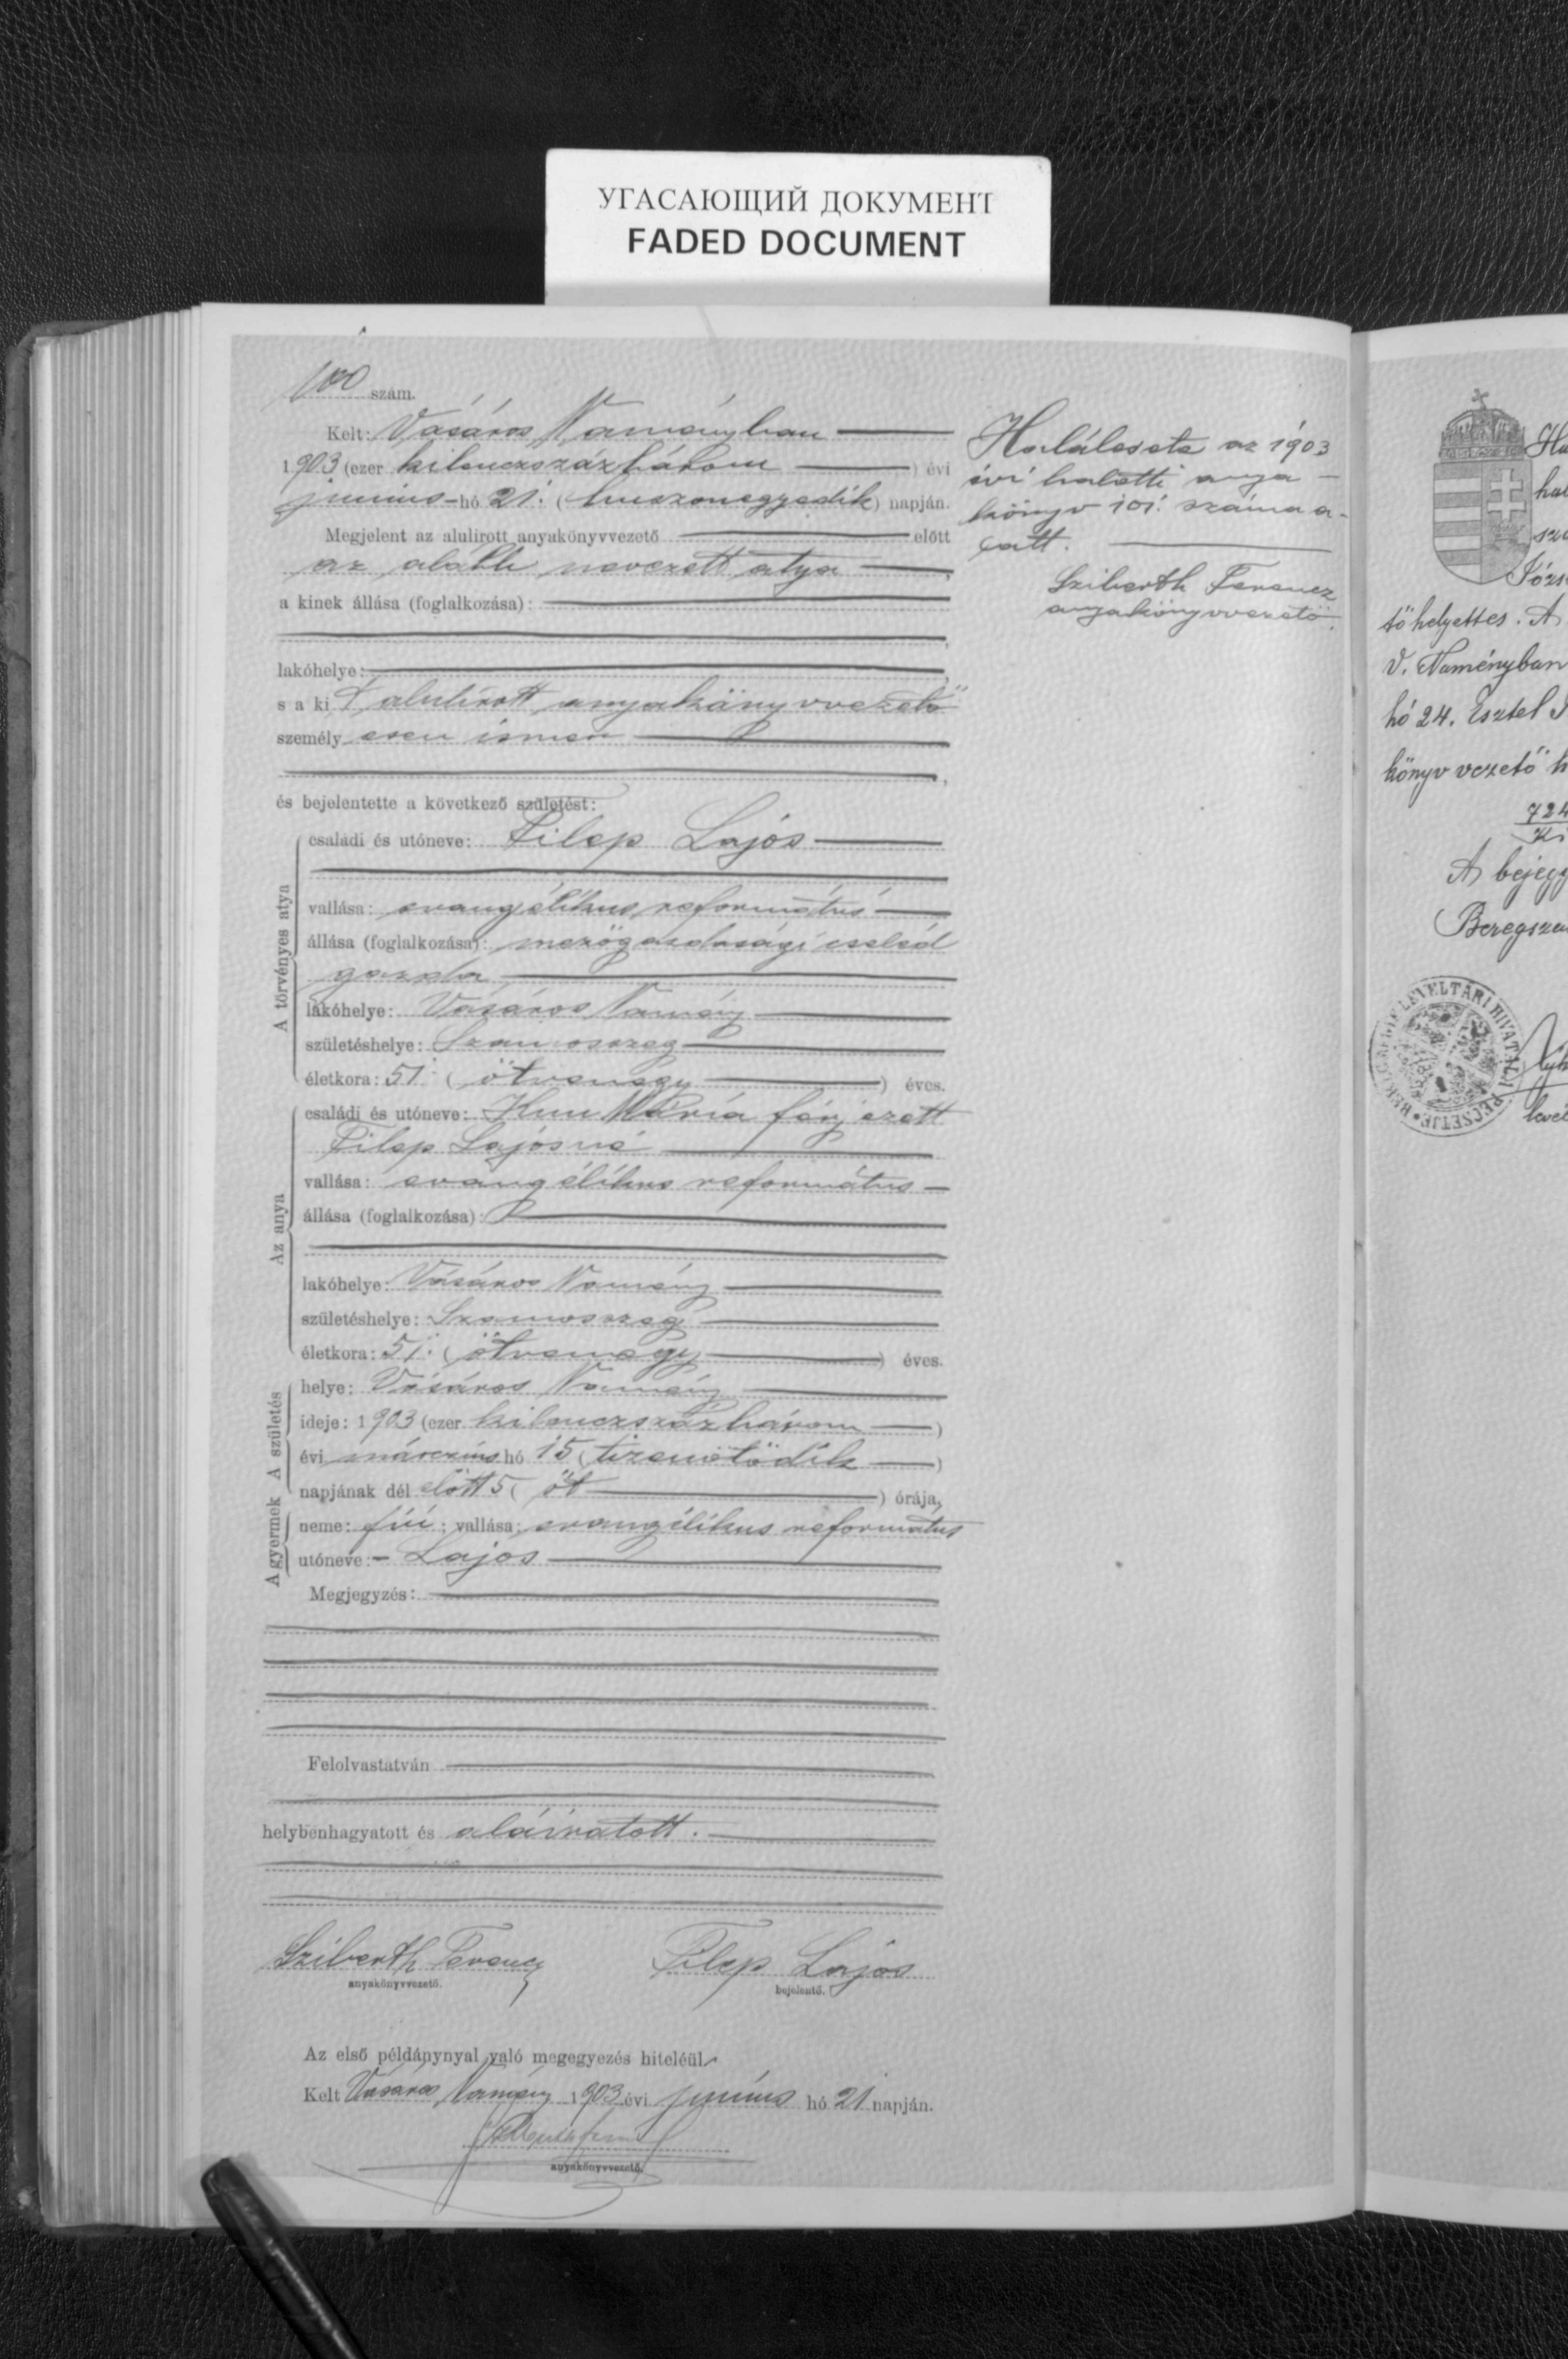 УГАСАЮЩИЙ ДОКУМЕНТ
FADED DOCUMENT
100 szám.
Kelt: Vásáros Naményban
1903 (ezer kilenczszázhárom) évi
junius hó 21. (huszonegyedik) napján.
Megjelent az alulirott anyakönyvvezető előtt
az alább nevezett atya,
a kinek állása (foglalkozása):
lakóhelye:
s a kit alulírott anyakönyvvezető
személyesen ismer
és bejelentette a következő születést:
A törvényes atya
családi és utóneve: Filep Lajós
vallása: evangélikus református
állása (foglalkozása): mezőgazdasági cseléd
gazda
lakóhelye: Vásáros Namény
születéshelye: Szamosszeg
életkora: 51. (ötvenegy) éves.
Az anya
családi és utóneve: Kun Mária férjezett
Filep Lajósné
vallása: evangélikus református
állása (foglalkozása):
lakóhelye: Vásáros Namény
születéshelye: Szamosszeg
életkora: 51. (ötvenegy) éves.
A születés
helye: Vásáros Namény
ideje: 1903 (ezer kilenczszázhárom)
évi márczius hó 15 (tizenötödik)
napjának dél előtt 5 (öt) órája,
A gyermek
neme: fiú; vallása: evangélikus református
utóneve: - Lajos
Megjegyzés:
Felolvastatván
helybenhagyatott és aláíratott.
Sziberth Ferencz
anyakönyvvezető.
Filep Lajos
bejelentő.
Az első példánynyal való megegyezés hiteléül
Kelt Vásáros Namény 1903 évi június hó 21 napján.
anyakönyvvezető.
Halálesete az 1903
évi halotti anya-
könyv 101. száma a-
latt.
Sziberth Ferencz
anyakönyvvezető.
tőhelyettes. A
V. Naményban
hó 24. Esztel
könyvvezető h
724
A bejegy
Beregsza
LEVÉLTÁRI HIVATAL
PECSÉTJE
levél